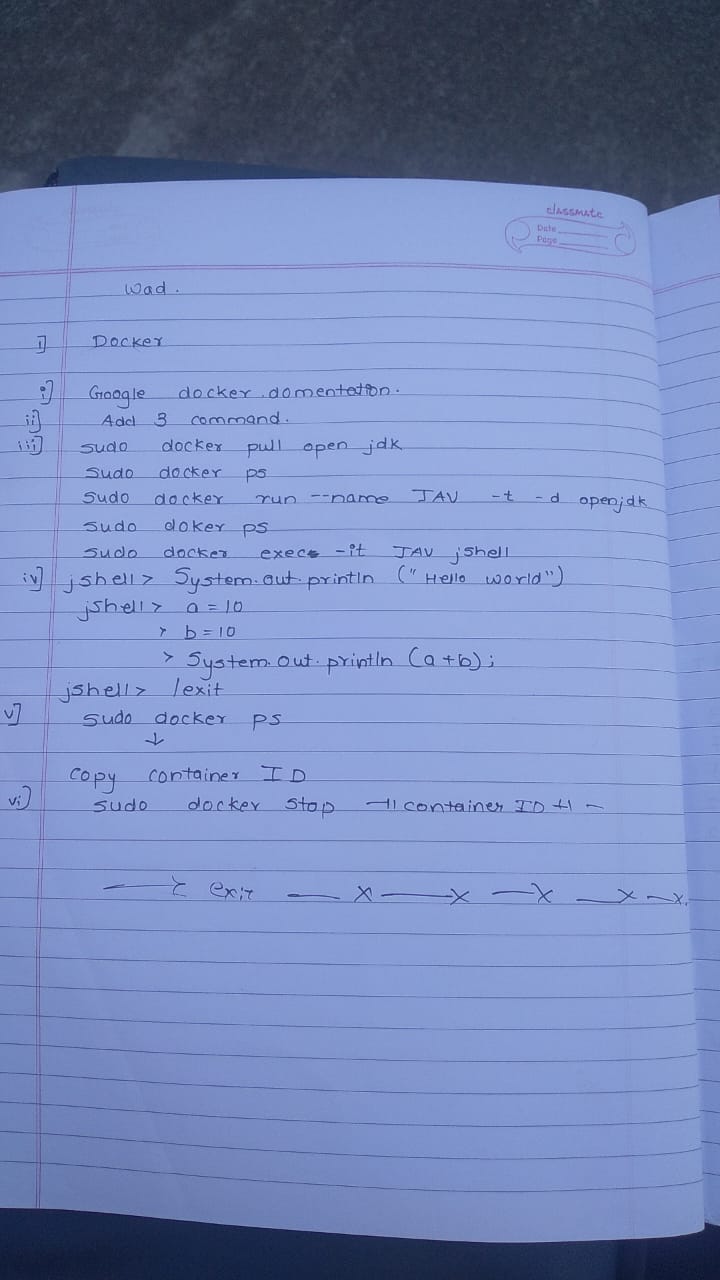 classmate
Date
Page
Wad.
1] Docker
i] Google docker domentation.
ii] Add 3 command.
iii] sudo docker pull open jdk
sudo docker ps
sudo docker run --name JAV -t -d openjdk
sudo doker ps
sudo docker exec -it JAV jshell
iv] jshell> System.out.println ("Hello world")
jshell> a = 10
> b = 10
> System.out.println (a+b);
jshell> /exit
v] sudo docker ps
↓
copy container ID
vi] sudo docker stop container ID
exit